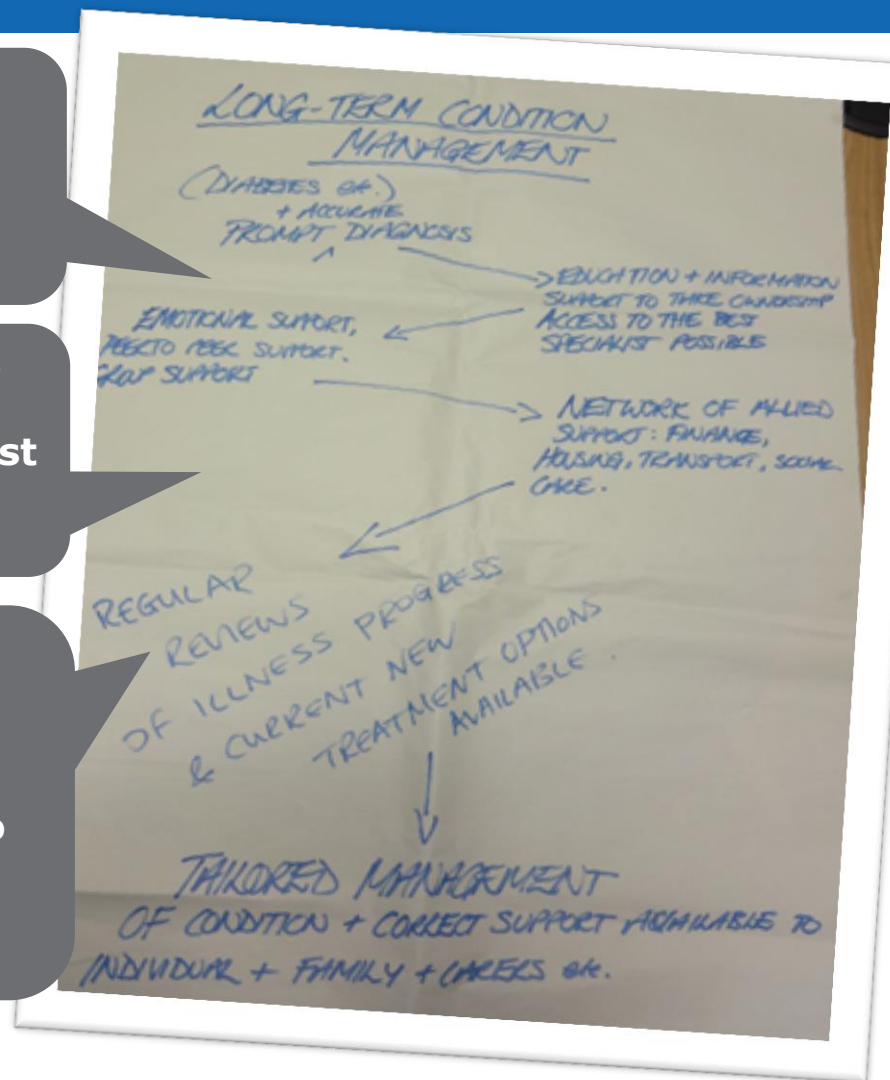 st
LONG-TERM CONDITION
MANAGEMENT
(DIABETES etc.)
+ ACCURATE
PROMPT DIAGNOSIS
EDUCATION + INFORMATION
SUPPORT TO TAKE OWNERSHIP
ACCESS TO THE BEST
SPECIALIST POSSIBLE
EMOTIONAL SUPPORT,
PEER TO PEER SUPPORT.
GROUP SUPPORT
NETWORK OF ALLIED
SUPPORT: FINANCE,
HOUSING, TRANSPORT, SOCIAL
CARE.
REGULAR
REVIEWS
OF ILLNESS PROGRESS
& CURRENT NEW
TREATMENT OPTIONS
AVAILABLE.
TAILORED MANAGEMENT
OF CONDITION + CORRECT SUPPORT AVAILABLE TO
INDIVIDUAL + FAMILY + CARERS etc.